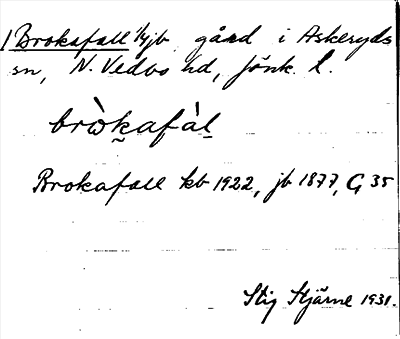 1 Brokafall 1/4 jb gård i Askeryds
sn, N. Vedbo hd, Jönk. l.
bròkafàl
Brokafall kb 1922, jb 1877, G 35
Stig Stjärne 1931.